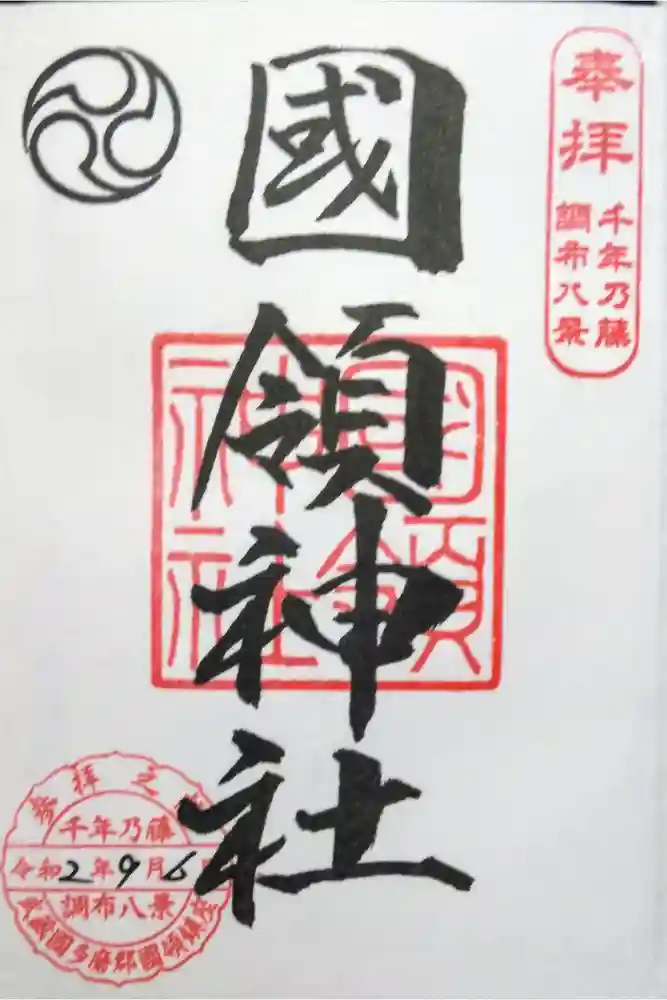 奉拝
千年乃藤
調布八景
國領神社
國領神社
参拝之
千年乃藤
令和2年9月6日
調布八景
武蔵國多磨郡國領鎮座